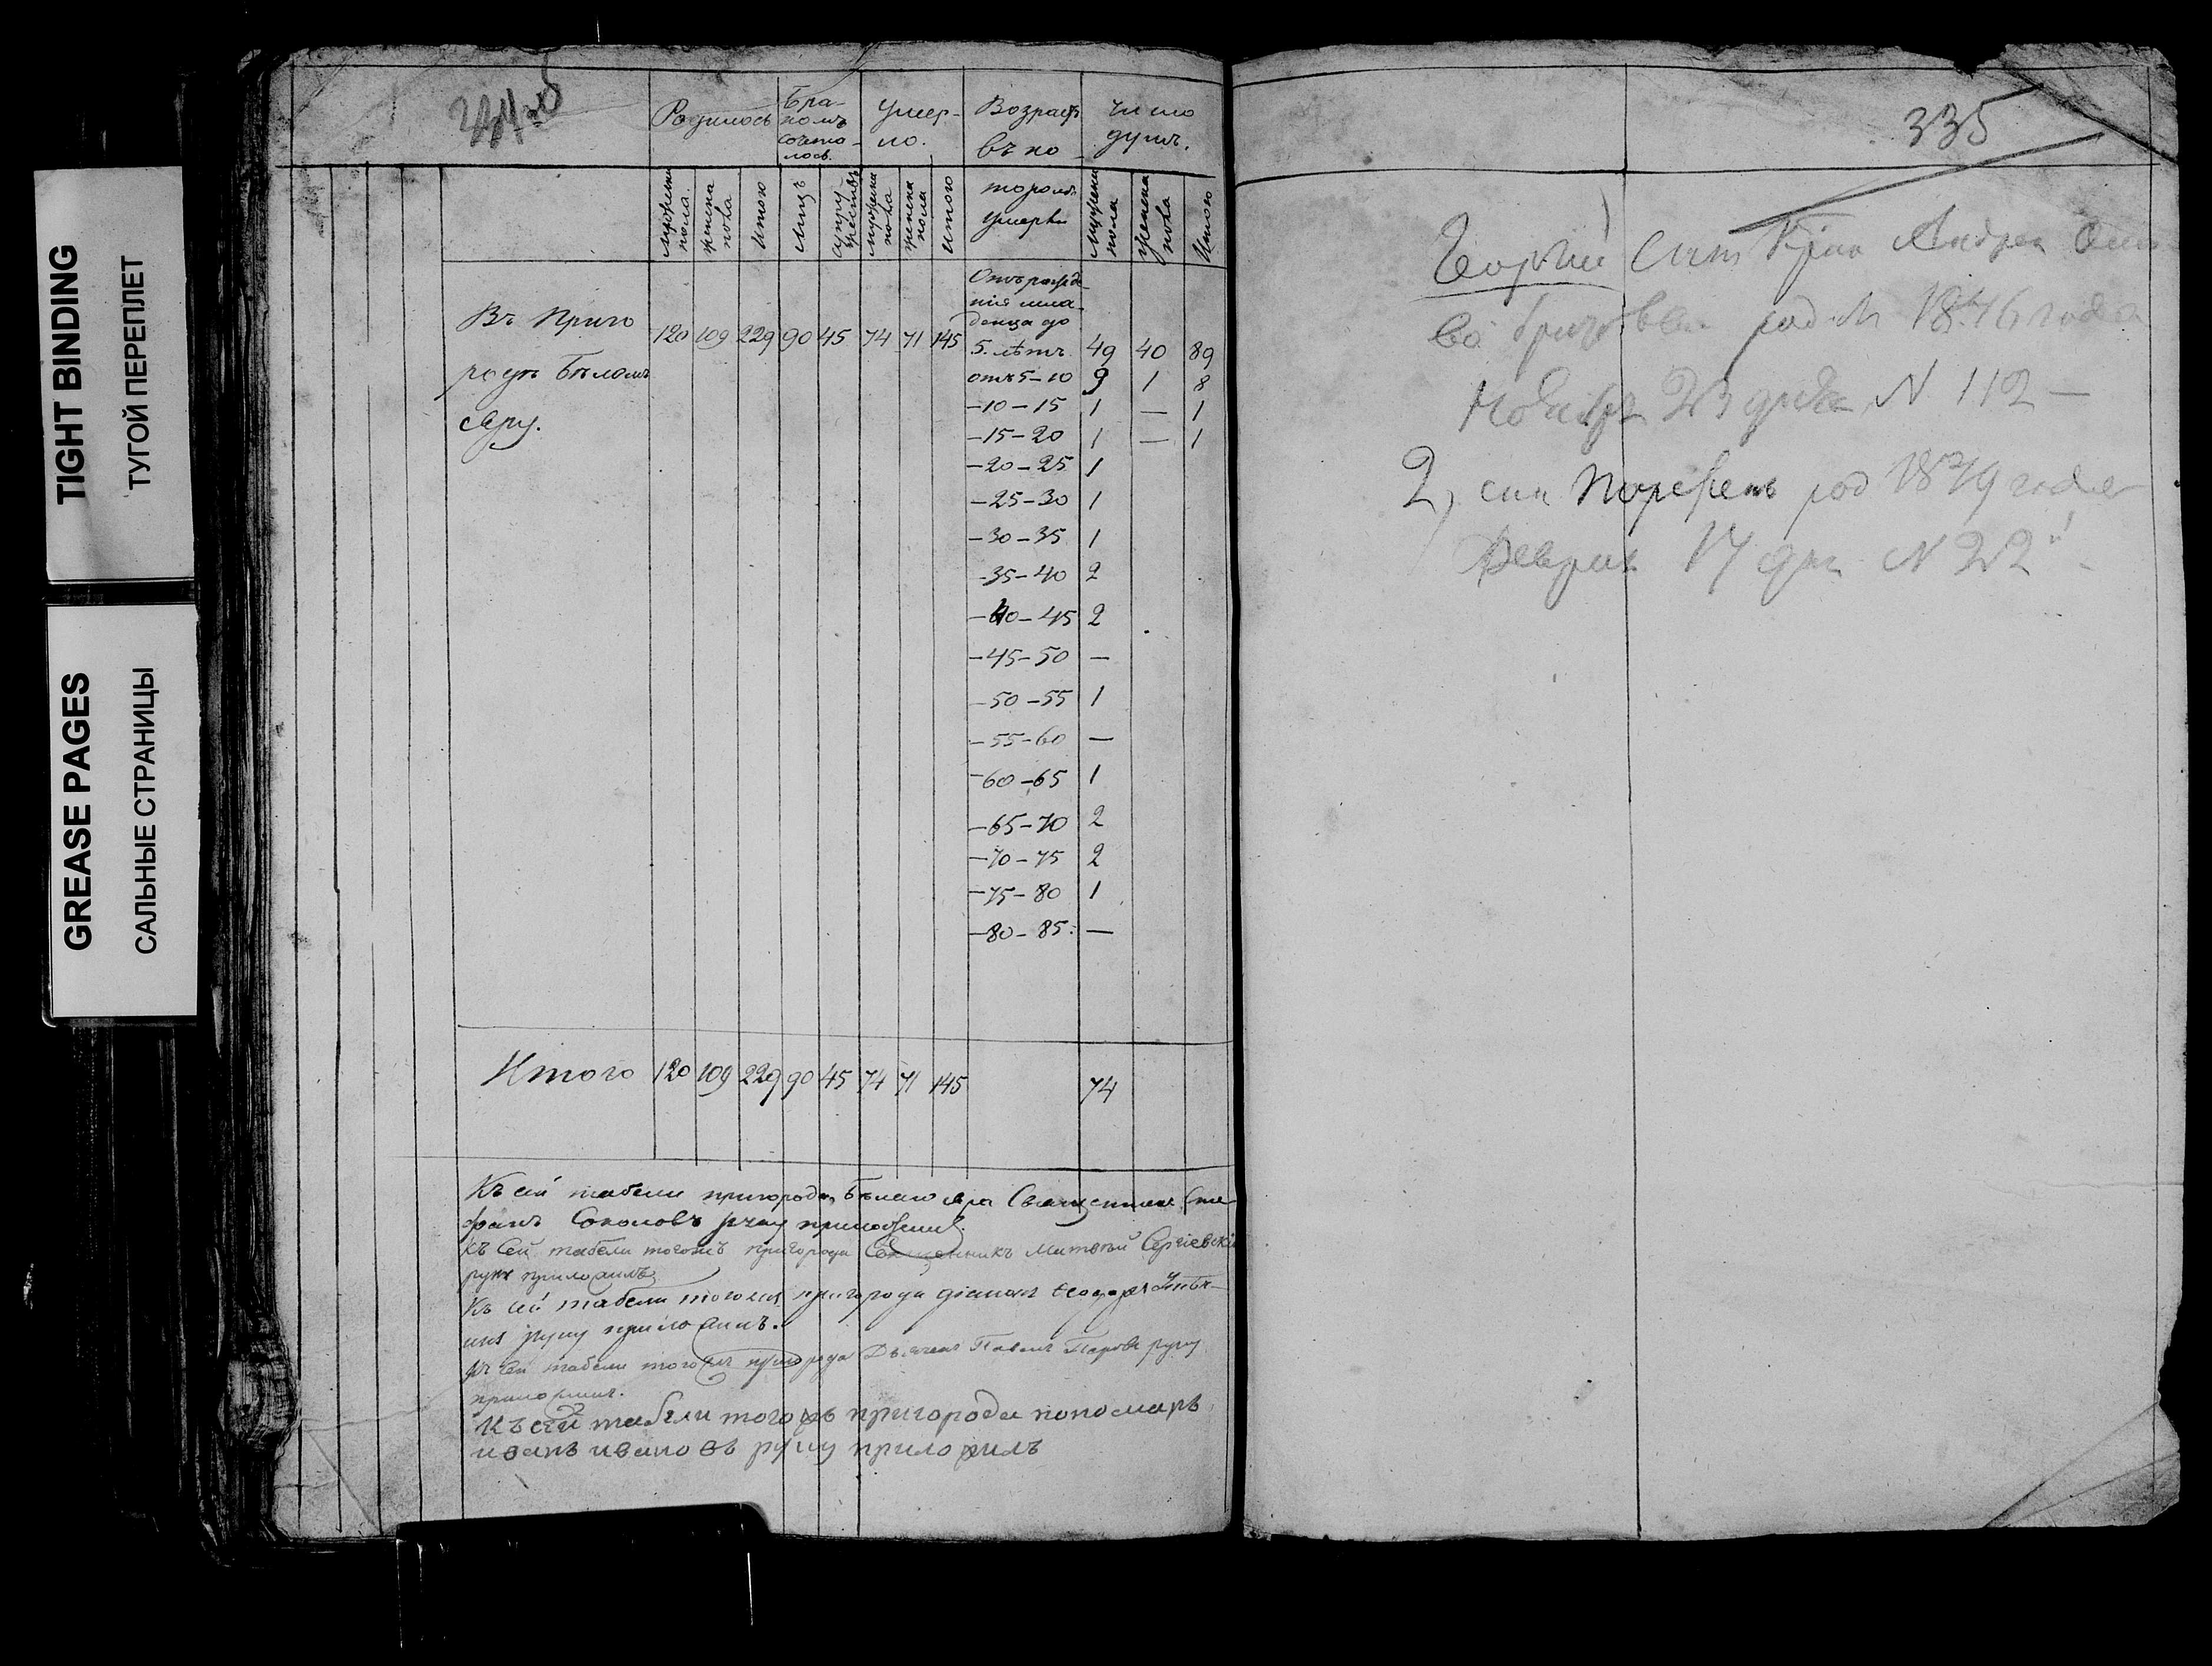 TIGHT BINDING
ТУГОЙ ПЕРЕПЛЕТ
GREASE PAGES
САЛЬНЫЕ СТРАНИЦЫ
Родилось
Бракомъ сочеталось
Умерло.
Возрастъ въ которомъ умерли
число душъ.
мужеска пола
женска пола
итого
лицъ
супружествъ
мужеска пола
женска пола
итого
мужеска пола
женска пола
Итого
Въ Приго
родѣ Бѣломъ
Яру.
120 109 229 90 45 74 71 145
Отъ рожде
нія мла
денца до
5. лѣтъ 49 40 89
отъ 5-10 9 1 8
-10-15 1 — 1
-15-20 1 — 1
-20-25 1
-25-30 1
-30-35 1
-35-40 2
-40-45 2
-45-50 —
-50-55 1
-55-60 —
-60-65 1
-65-70 2
-70-75 2
-75-80 1
-80-85: —
Итого 120 109 229 90 45 74 71 145 74
Къ сей табели пригорода Бѣлаго Яра Священникъ Сте
фанъ Соколовъ руку приложилъ.
Къ Сей табели тогожъ пригорода Священникъ Матвѣй Сергіевскій
руку приложилъ
Къ сей табели тогожъ пригорода діаконъ Ѳеодоръ
руку приложилъ.
Къ Сей табели тогожъ пригорода Дьячекъ Павелъ руку
приложилъ.
Къ сей табели тогожъ пригорода пономарь
иванъ ивановъ руку приложилъ
335
Георгій Андрея
род 1846 года
Ноября 23 дня N 112 —
2, сын род 1849 года
Февраля 17 дня N 22